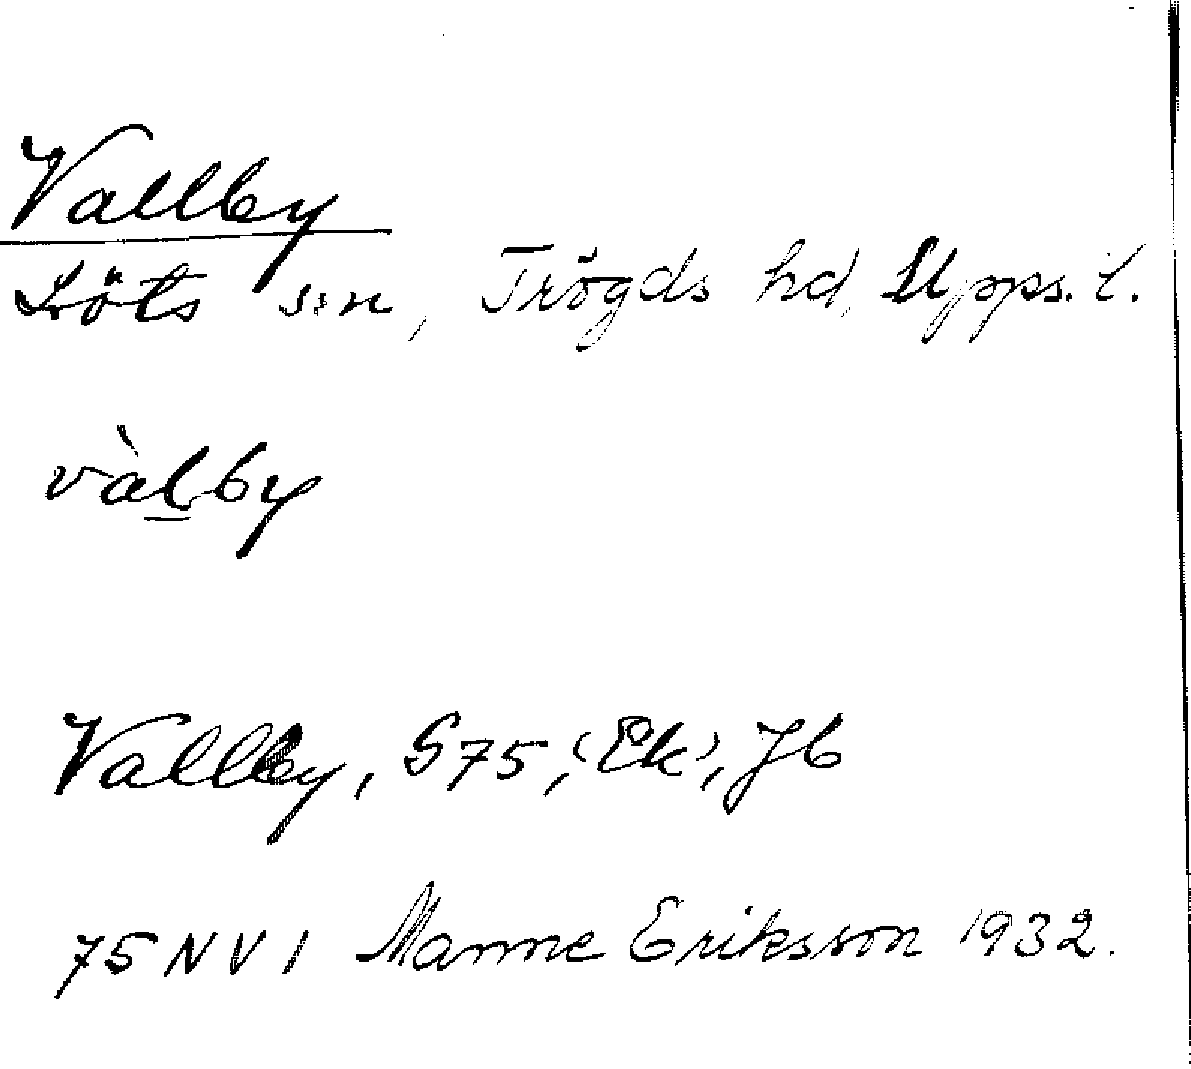 Vallby
Löts s:n, Trögds hd, Upps. l.
vàlby
Vallby, S75, (Ek), Jb
75 NV 1 Manne Eriksson 1932.